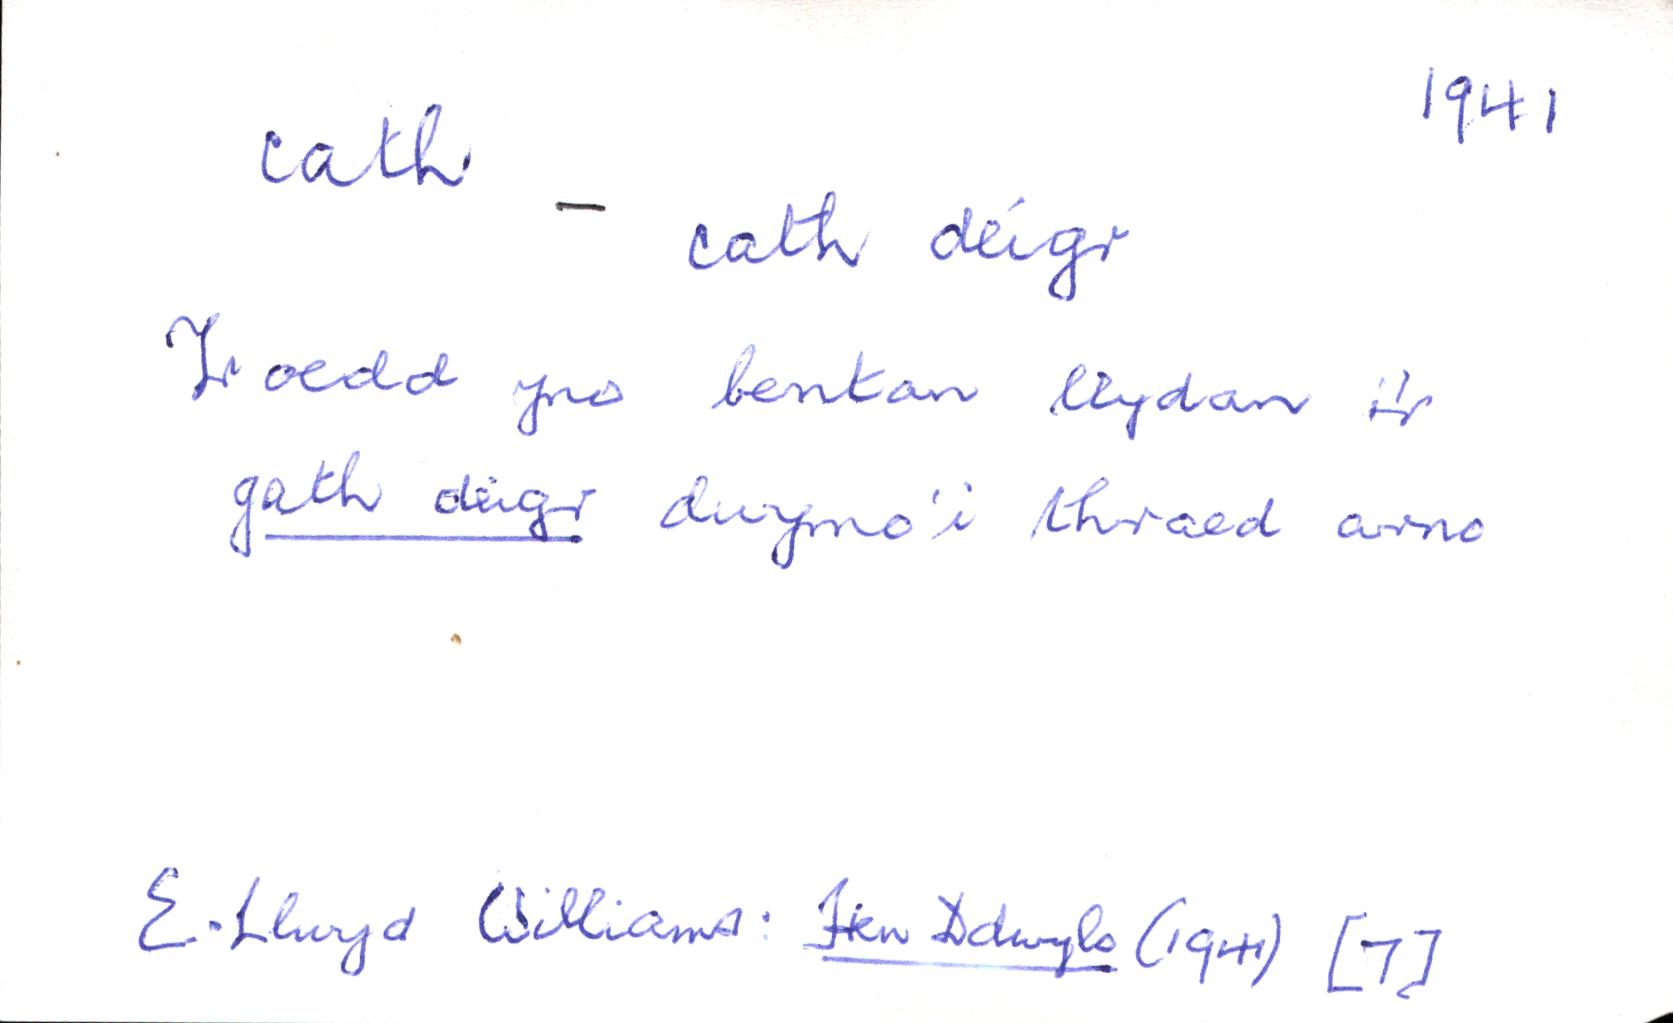 1941
cath –
cath deigr
Yr oedd yno bentan llydan i'r
gath deigr dwymo'i thraed arno
E. Llwyd Williams: Hen Ddwylo (1941) [7]